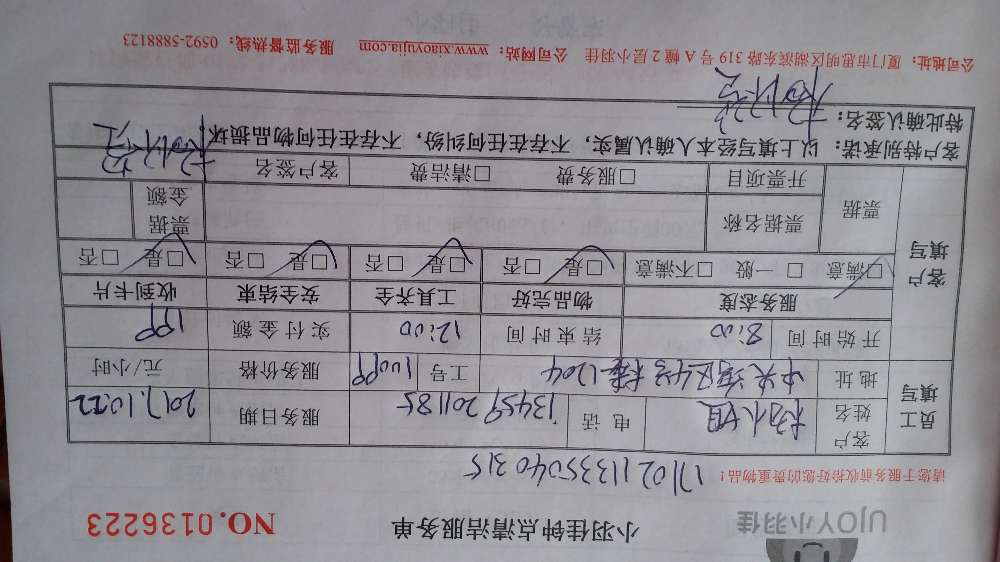 UJOY小羽佳
小羽佳钟点清洁服务单
NO.0136223
请您于服务前收拾好您的贵重物品！
1710211335040315
员工填写
客户姓名 杨小姐 电话 13459201185 服务日期 2017.10.22
地址 中央海区4号楼1204 工号 服务价格 元/小时
开始时间 8:00 结束时间 12:00 实付金额
客户填写
服务态度 物品完好 工具齐全 安全结束 收到卡片
□满意 □一般 □不满意 □是 □否 □是 □否 □是 □否 □是 □否
票据 票据名称 票据金额
开票项目 □服务费 □清洁费 客户签名
客户特别承诺：以上填写经本人确认属实，不存在任何纠纷，不存在任何物品损坏，
特此确认签名：
公司地址：厦门市思明区湖滨东路 319 号 A 幢 2 层小羽佳 公司网站：www.xiaoyujia.com 服务监督热线：0592-5888123